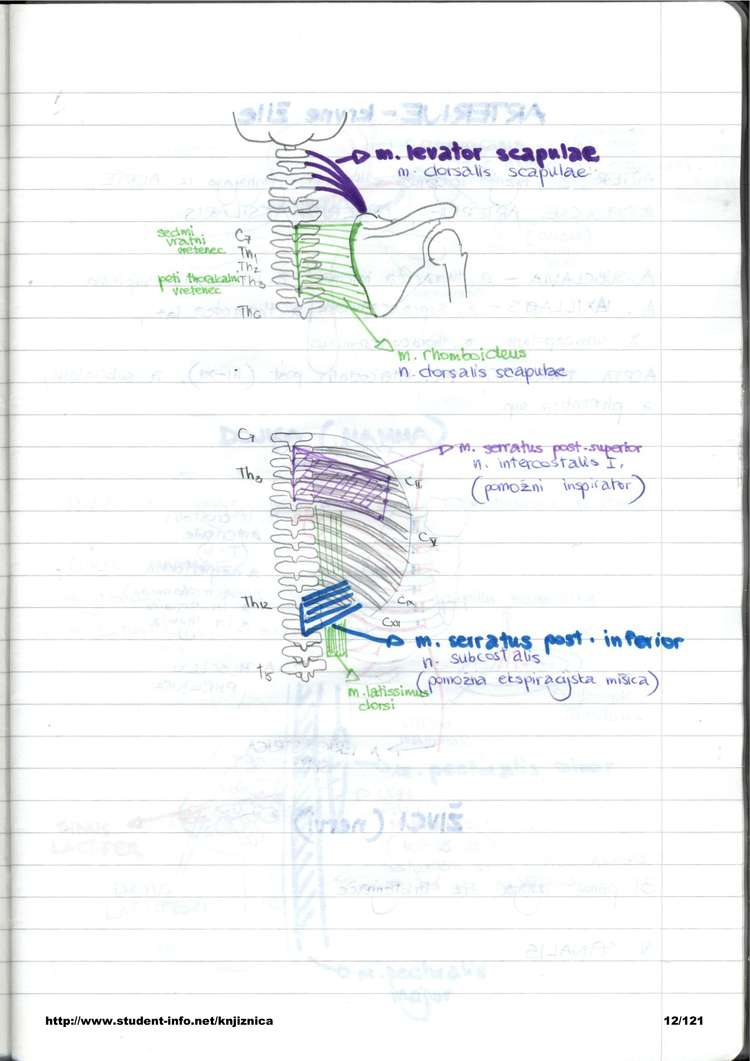 m. levator scapulae
m. dorsalis scapulae
sedmi
vratni
vretenec
C7
Th1
Th2
peti thorakalni
vretenec
Th3
Th6
m. rhomboideus
n. dorsalis scapulae
C7
m. serratus post. superior
n. intercostalis I.
(pomožni inspirator)
Th3
CII
CV
Th12
CIX
CXII
m. serratus post. inferior
n. subcostalis
(pomožna ekspiracijska mišica)
m. latissimus
dorsi
http://www.student-info.net/knjiznica
12/121